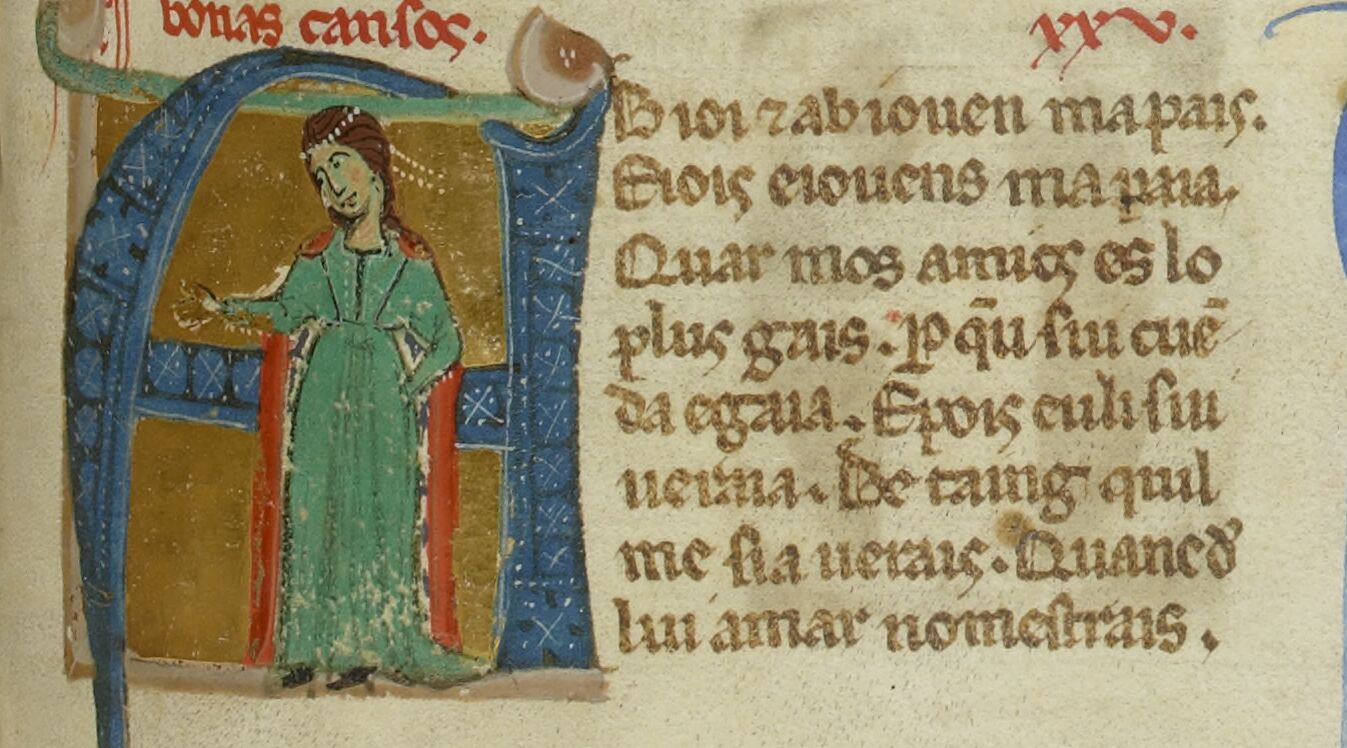 bonas cansos.
xxv.
A B ioi ⁊ ab iouen mapais.
E iois eiouens ma paia.
Quar mos amics es lo
plus gais. ꝑ q̄u sui cuē
da egaia. E pois euli sui
ueraia. Be taing quil
me sia uerais. Quanc đ
lui amar nomestrais.